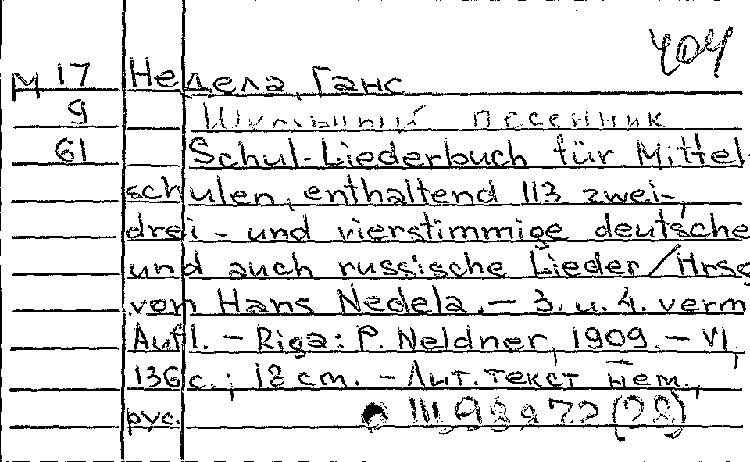 404
М 17 Недела, Ганс
9 Школьный песенник
61 Schul-Liederbuch für Mittel-
schulen, enthaltend 113 zwei-,
drei- und vierstimmige deutsche
und auch russische Lieder/Hrsg
von Hans Nedela.- 3. u. 4. verm
Aufl. - Riga: P. Neldner, 1909. - VI,
136 с.; 18 cm. - Лит. текст нем.,
рус.